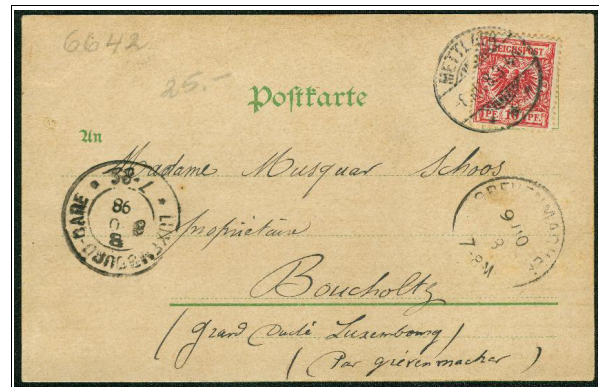 6642
25.-
Postkarte
An
REICHSPOST
10
METTLACH
Madame Musquar Schoos
propriétaire
Boucholtz
(Grand Duché Luxembourg)
(Par grévenmacher)
LUXEMBOURG-GARE
7-8S
98
GREVENMACHER
9 10
7-8M